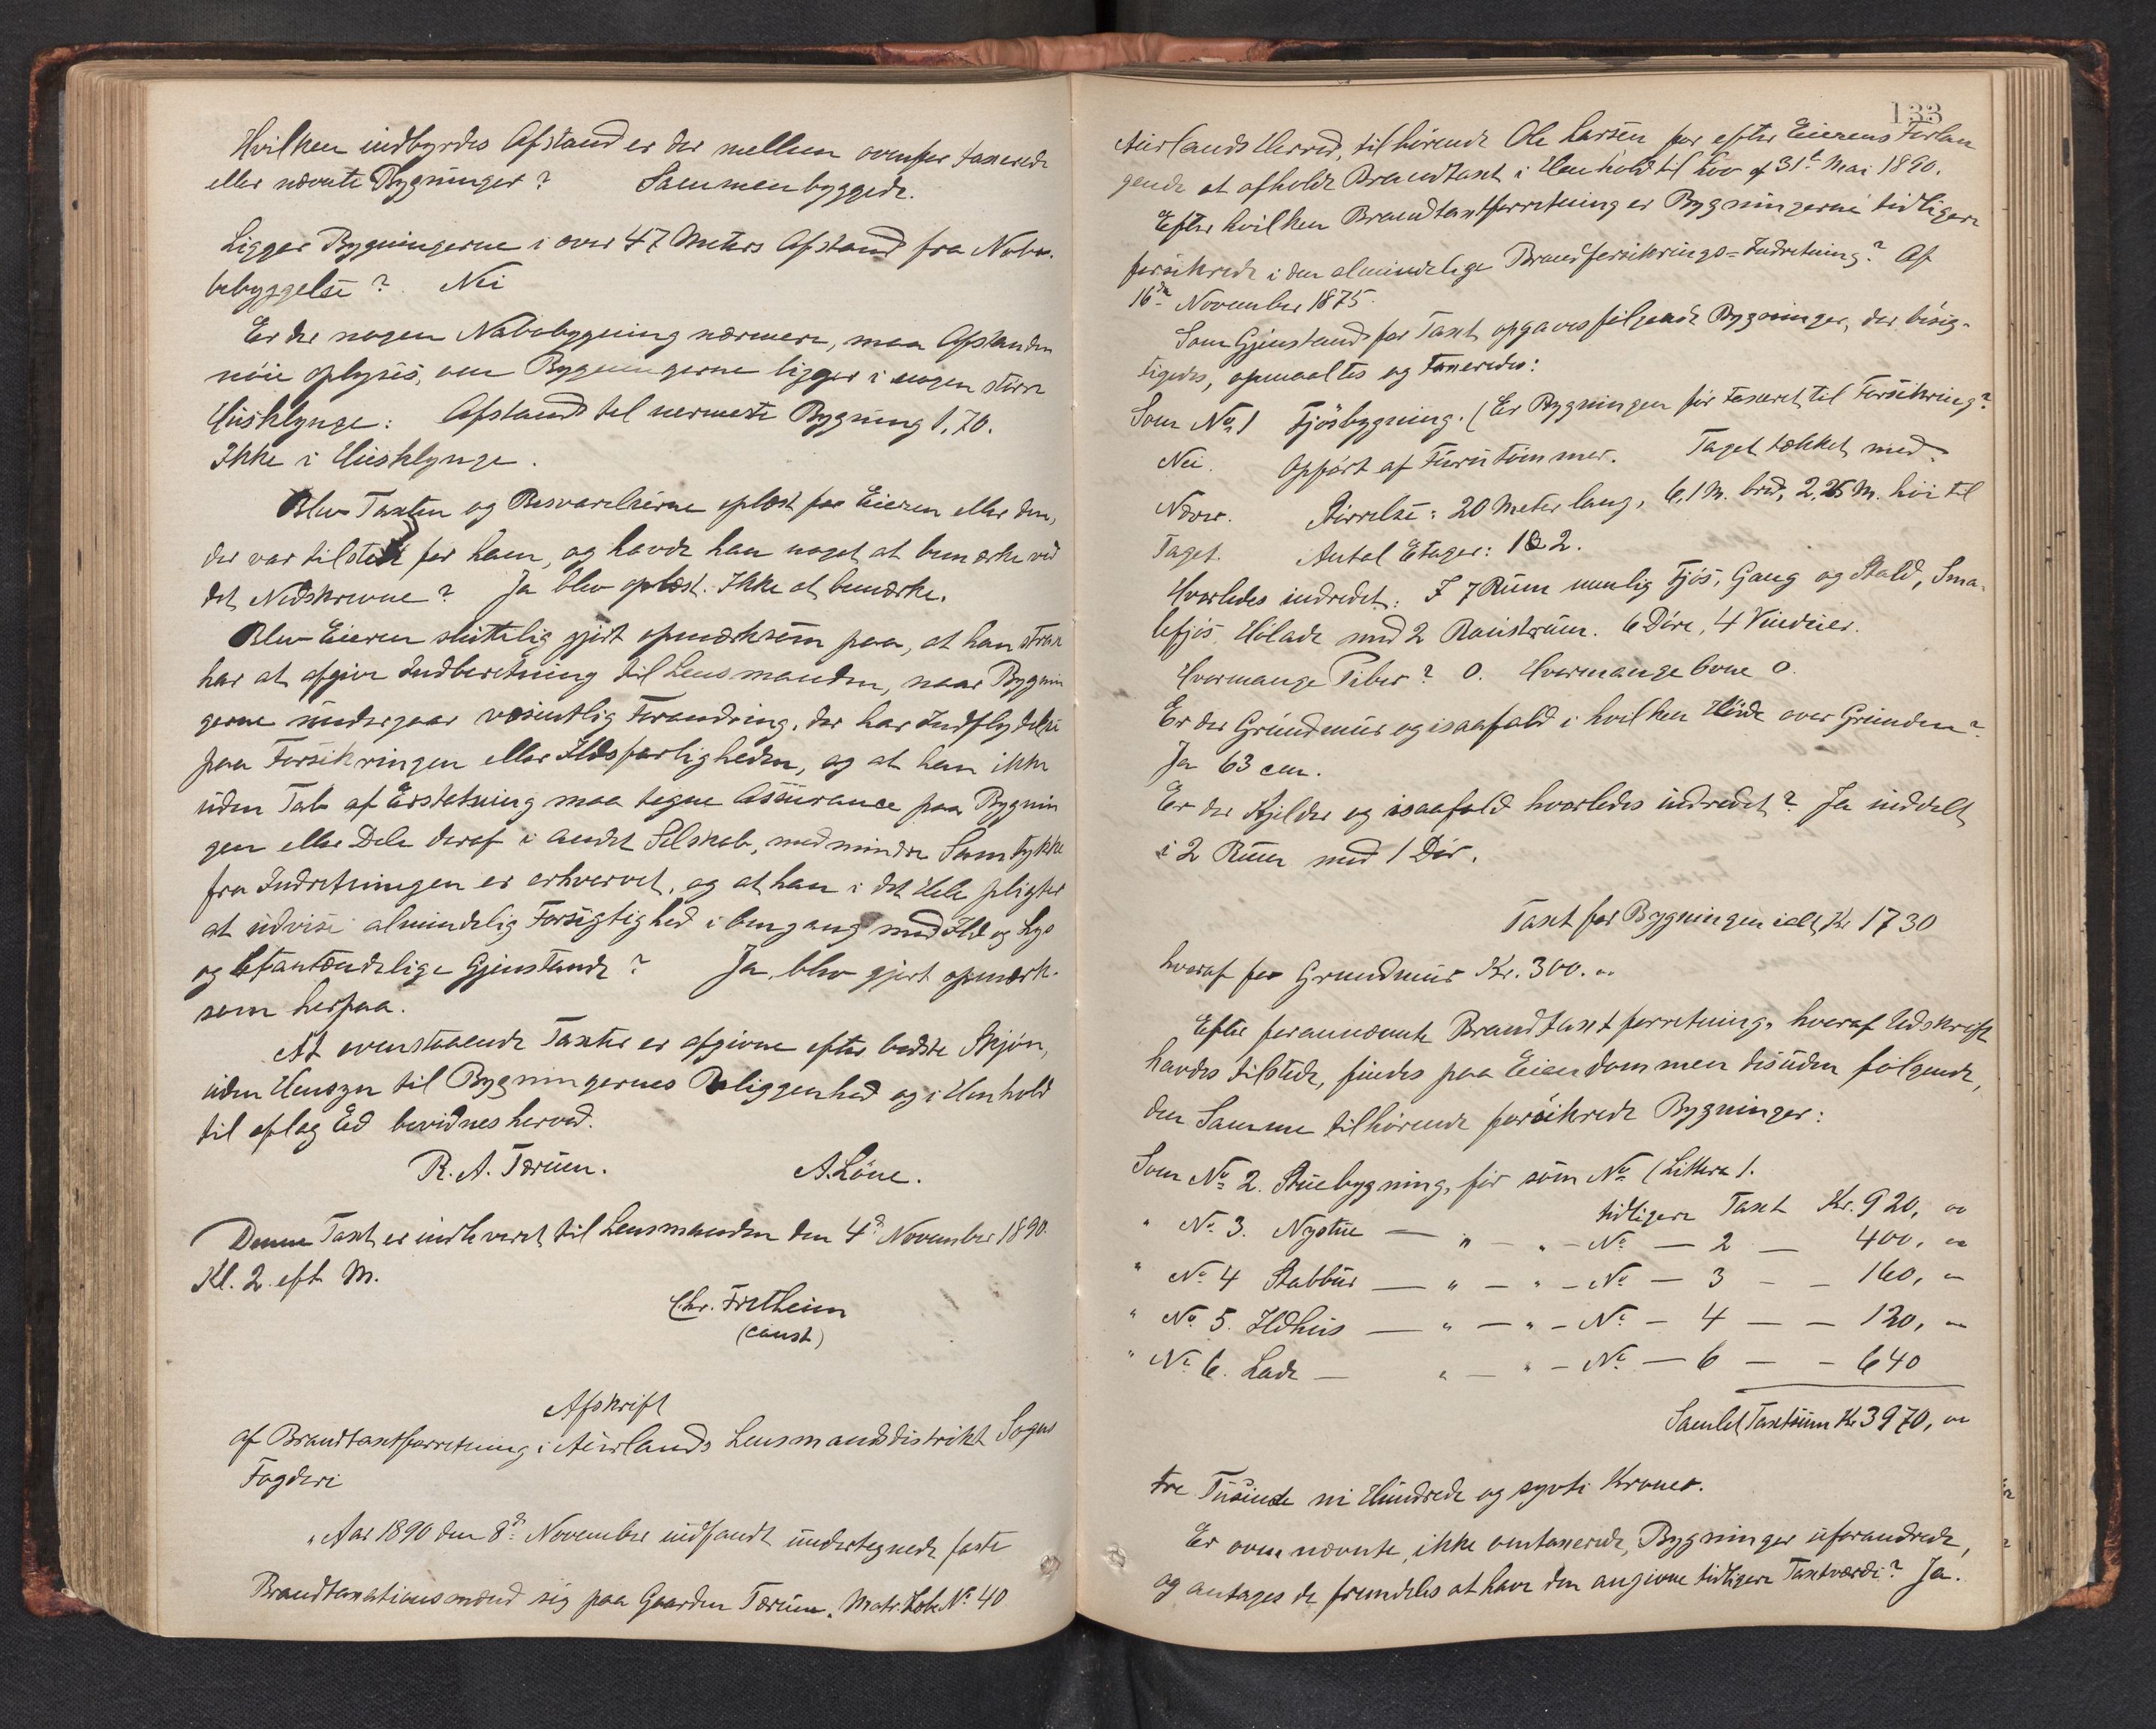 Hvilken indbyrdes Afstand er der mellem ovenfor taxerede
eller nævnte Bygninger? Sammenbyggede.
Ligger Bygningerne i over 47 Meters Afstand fra Nabo-
bebyggelse? Nei
Er der nogen Nabobygning nærmere, maa Afstanden
nöie oplyses, om Bygningerne ligger i nogen större
Husklynge: Afstand til nermeste Bygning 1,70.
Ikke i Husklynge.
Blev Taxten og Besvarelserne oplæst for Eieren eller den,
der var tilstede for ham, og havde han noget at bemærke ved
det Nedskrevne? Ja blev oplæst. Ikke at bemærke.
Blev Eieren sluttelig gjort opmærksom paa, at han strax
har at afgive Indberetning til Lensmanden, naar Bygnin
gerne undergaar væsentlig Forandring, der har Indflydelse
paa Forsikringen eller Ildsfarligheden, og at han ikke
uden Tab af Erstatning maa tegne Assurance paa Bygnin
gen eller Dele deraf i andet Selskab, medmindre Samtykke
fra Indretningen er erhvervet, og at han i det Hele pligter
at udvise almindelig Forsigtighed i Omgang med Ild og Lys
og letantændelige Gjenstande? Ja, blev gjort opmærk-
som herpaa.
At ovenstaaende Taxter er afgivne efter bedste Skjön,
uden Hensyn til Bygningernes Beliggenhed og i Henhold
til aflag Ed bevidnes herved.
R. A. Tærum. A. Löne.
Denne Taxt er indleveret til Lensmanden den 4de November 1890.
Kl. 2 eft M.
Chr. Fretheim
(const)
Afskrift
af Brandtaxtforretning i Aurlands Lensmandsdistrikt Sogns
Fogderi
"Aar 1890 den 8de November indfandt undertegnede faste
Brandtaxationsmænd sig paa Gaarden Tærum, Matr. Löb No 40
133
Aurlands Herred, tilhörende Ole Larsen for efter Eierens Forlan
gende at afholde Brandtaxt i Henhold til Lov af 31te Mai 1890.
Efter hvilken Brandtaxtforretning er Bygningerne tidligere
forsikrede i den almindelige Brandforsikrings-Indretning? Af
16de November 1875.
Som Gjenstand for Taxt opgaves fölgende Bygninger, der besig-
tigedes, opmaaltes og taxeredes:
Som No 1 Fjösbygning. (Er Bygningen för taxeret til Forsikring?
Nei. Opfört af Furutömmer. Taget tækket med
Næver. Störrelse: 20 Meter lang, 6,1 M. bred, 2,25 M. höi til
Taget. Antal Etager: 1 & 2.
Hvorledes indredet: I 7 Rum nemlig Fjös, Gang og Stald, Sma-
lefjös, Hölade med 2 Rauströum. 6 Döre, 4 Vinduer.
Hvormange Piber? 0. Hvormange Ovne 0.
Er der Grundmur og isaafald i hvilken Höide over Grunden?
Ja 63 cm.
Er der Kjelder og isaafald hvorledes indredet? Ja inddelt
i 2 Rum med 1 Dör.
Taxt for Bygningen ialt Kr 1730
hvoraf for Grundmur Kr. 300. "
Efter forannævnte Brandtaxtforretning, hvoraf Udskrift
havdes tilstede, findes paa Eiendommen desuden fölgende,
den Samme tilhörende forsikrede Bygninger:
Som No 2. Stuebygning, för som No (Littera) 1.
tidligere Taxt Kr. 920, "
" No 3. Nystue — " — " — No — 2 — 400, "
" No 4 Stabbur — " — " — No — 3 — — 160, "
" No 5. Ildhus — " — " — No — 4 — — 120, "
" No 6. Lade — " — " — No — 6 — — 640
Samlet Taxtsum Kr 3970, "
tre Tusinde ni Hundrede og sytti Kroner.
Er ovennævnte, ikke omtaxerede, Bygninger uforandrede,
og antages de fremdeles at have den angivne tidligere Taxtværdi? Ja.